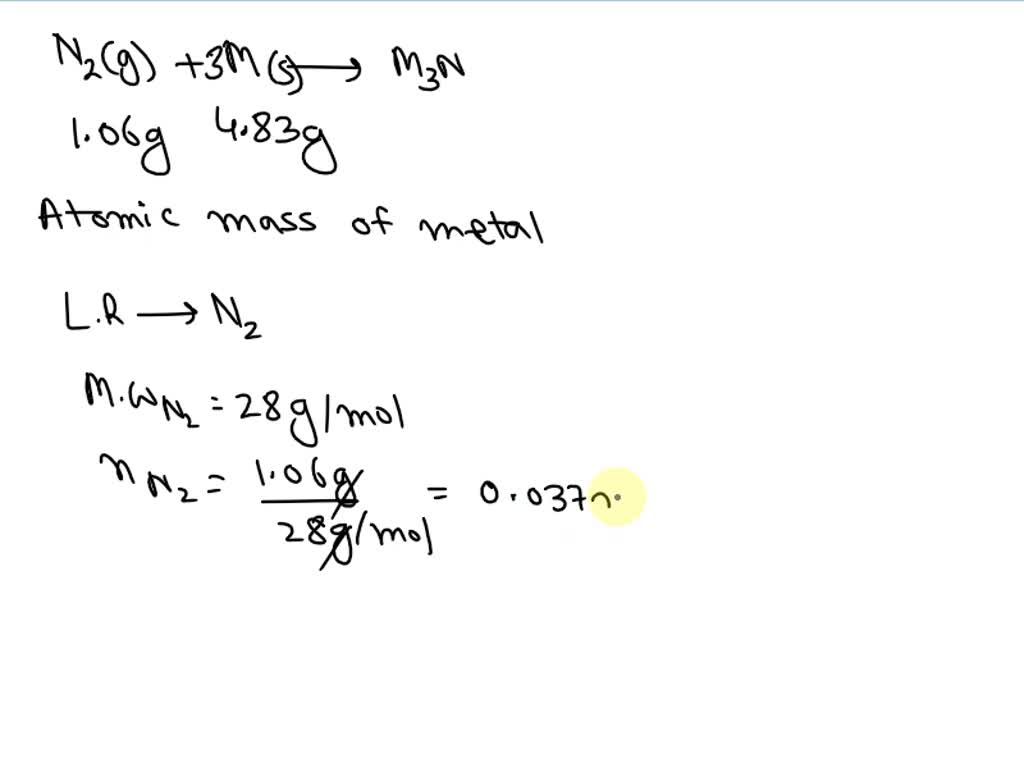 N2(g) + 3M(s) ⟶ M3N
1.06g 4.83g
Atomic mass of metal
L.R ⟶ N2
M.WN2 = 28g/mol
nN2 = 1.06g / 28g/mol = 0.037n